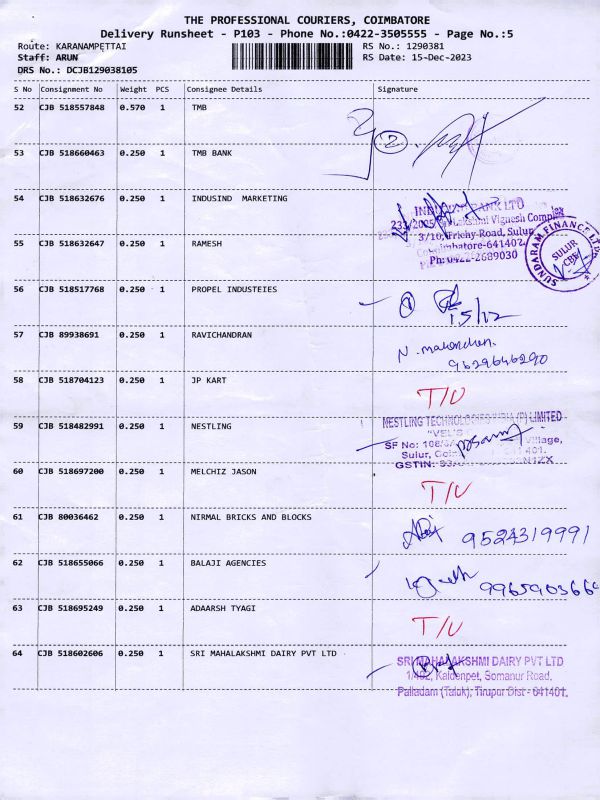 THE PROFESSIONAL COURIERS, COIMBATORE
Delivery Runsheet - P103 - Phone No.:0422-3505555 - Page No.:5
Route: KARANAMPETTAI
RS No.: 1290381
Staff: ARUN
RS Date: 15-Dec-2023
DRS No.: DCJB129038105
S No Consignment No Weight PCS Consignee Details Signature
52 CJB 518557848 0.570 1 TMB
2
53 CJB 518660463 0.250 1 TMB BANK
54 CJB 518632676 0.250 1 INDUSIND MARKETING
BANK LTD
Lakshmi Vignesh Complex
3/10, Trichy Road, Sulur
Coimbatore-641402
Ph: 0422-2689030
55 CJB 518632647 0.250 1 RAMESH
SUNDARAM FINANCE LTD
SULUR
CBE
56 CJB 518517768 0.250 1 PROPEL INDUSTEIES
15/12
57 CJB 89938691 0.250 1 RAVICHANDRAN
9629646290
58 CJB 518704123 0.250 1 JP KART
T/U
59 CJB 518482991 0.250 1 NESTLING
NESTLING TECHNOLOGIES INDIA (P) LIMITED
"VEL'S
SF No: Village,
Sulur,
GSTIN:
60 CJB 518697200 0.250 1 MELCHIZ JASON
T/U
61 CJB 80036462 0.250 1 NIRMAL BRICKS AND BLOCKS
9524319991
62 CJB 518655066 0.250 1 BALAJI AGENCIES
63 CJB 518695249 0.250 1 ADAARSH TYAGI
T/U
64 CJB 518602606 0.250 1 SRI MAHALAKSHMI DAIRY PVT LTD
SRI MAHALAKSHMI DAIRY PVT LTD
Somanur Road,
Palladam (Taluk), Tirupur Dist - 641401.